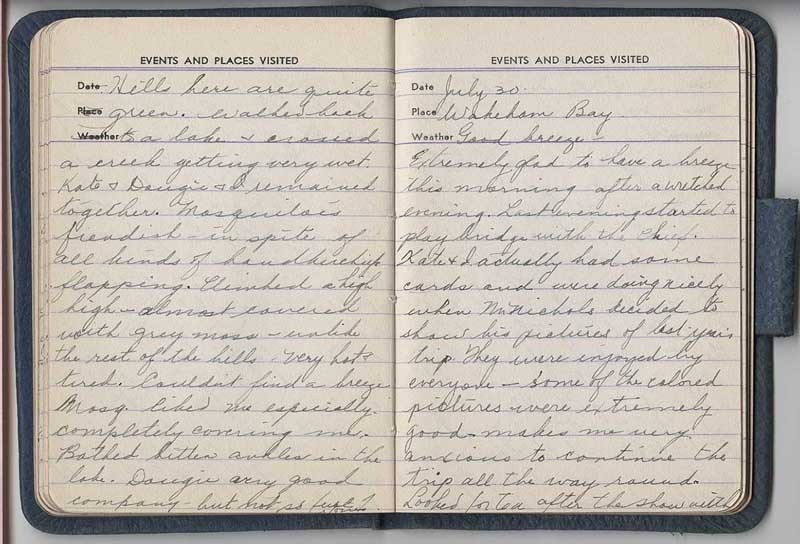 EVENTS AND PLACES VISITED
Date Hills here are quite
Place green. Walked back
Weather to a lake & crossed
a creek getting very wet.
Kate & Dougie & I remained
together. Mosquitoes
fiendish - in spite of
all kinds of handkerchiefs
flapping. Climbed a high
high - almost covered
with grey moss - unlike
the rest of the hills. Very hot &
tired. Couldn't find a breeze
Mosq. liked me especially.
completely covering me.
Bathed bitten ankles in the
lake. Dougie very good
company - but not so
EVENTS AND PLACES VISITED
Date July 30.
Place Wakeham Bay.
Weather Good breeze
Extremely glad to have a breeze
this morning after a wretched
evening. Last evening started to
play bridge with the Chief.
Kate & I actually had some
cards and were doing nicely
when McNichols decided to
show his pictures of last year's
trip. They were enjoyed by
everyone - some of the colored
pictures were extremely
good - makes me very
anxious to continue the
trip all the way round.
Looked for tea after the show with